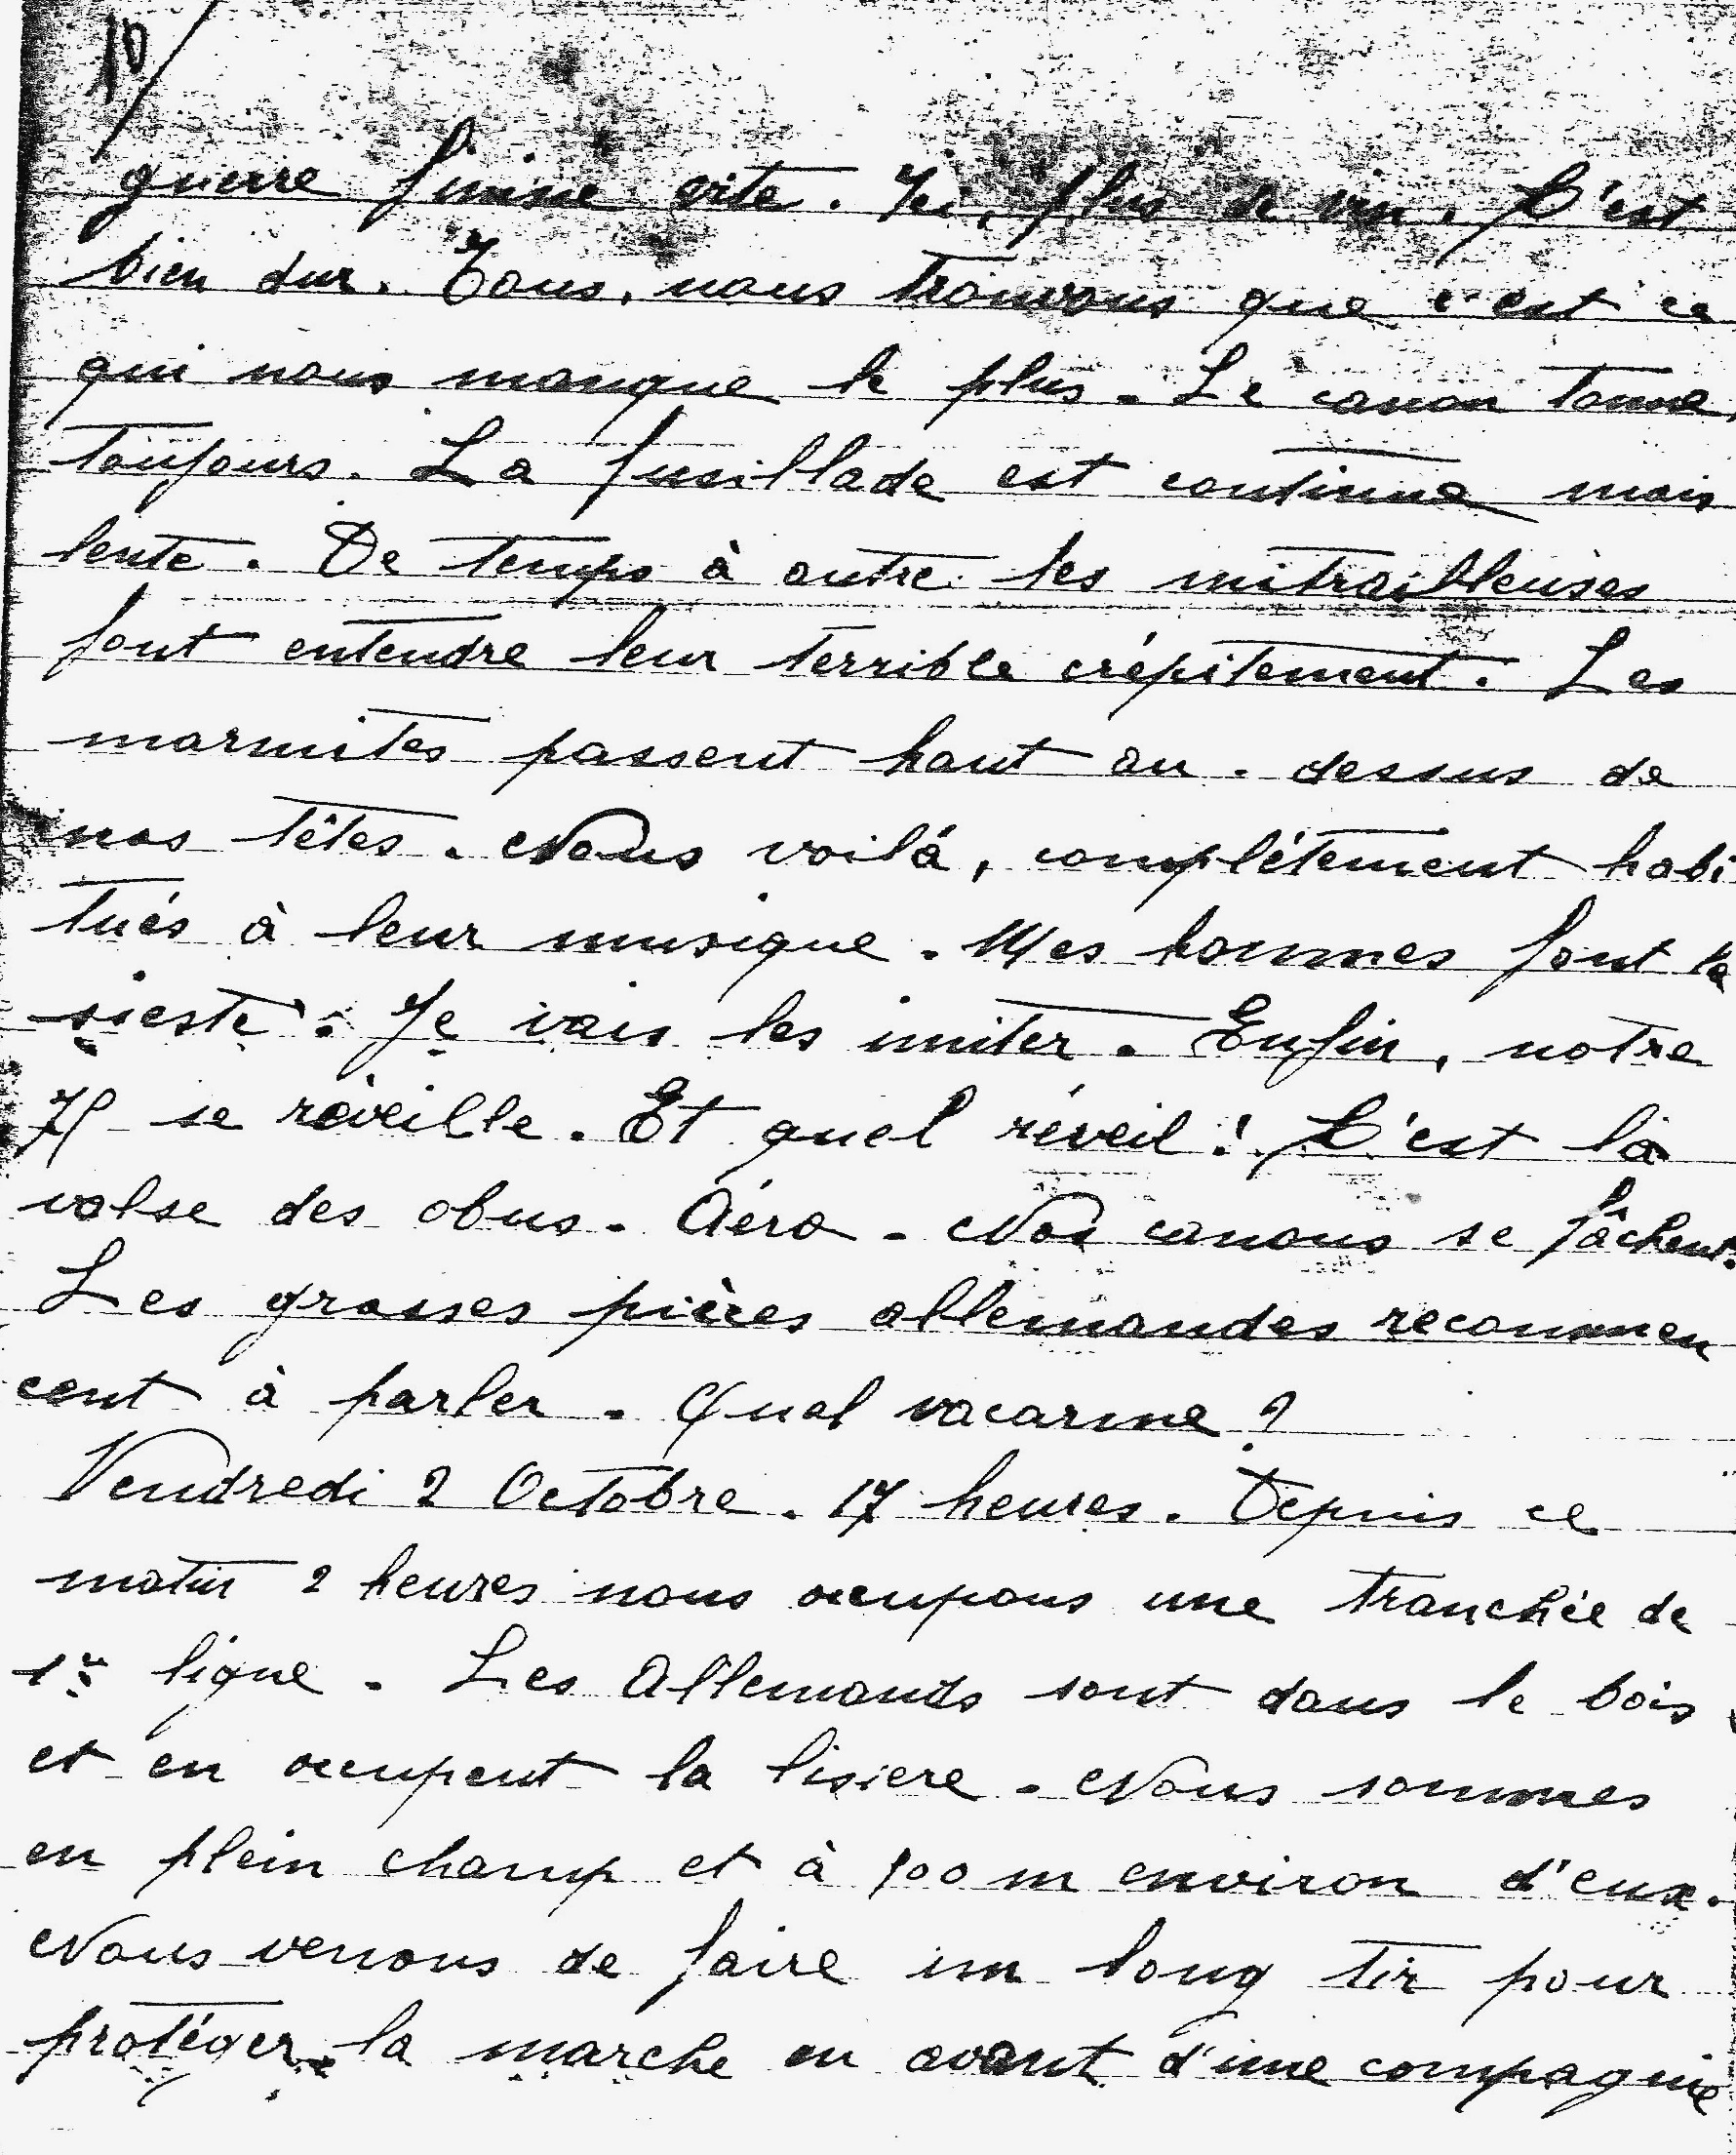 10/
guerre finisse vite. Ici, plus de vin. C'est
bien dur. Tous, nous trouvons que c'est ce
qui nous manque le plus. Le canon tonne
toujours. La fusillade est continue mais
lente. De temps à autre les mitrailleuses
font entendre leur terrible crépitement. Les
marmites passent haut au-dessus de
nos têtes. Nous voilà, complètement habi
tués à leur musique. Mes hommes font la
sieste. Je vais les imiter. Enfin, notre
75 se réveille. Et quel réveil! C'est la
valse des obus. Aéro. Nos canons se fâchent.
Les grosses pièces allemandes recommen
cent à parler. Quel vacarme?
Vendredi 2 Octobre. 17 heures. Depuis ce
matin 2 heures nous occupons une tranchée de
1re ligne. Les Allemands sont dans le bois
et en occupent la lisiere. Nous sommes
en plein champ et à 100 m environ d'eux.
Nous venons de faire un long tir pour
protéger la marche en avant d'une compagnie